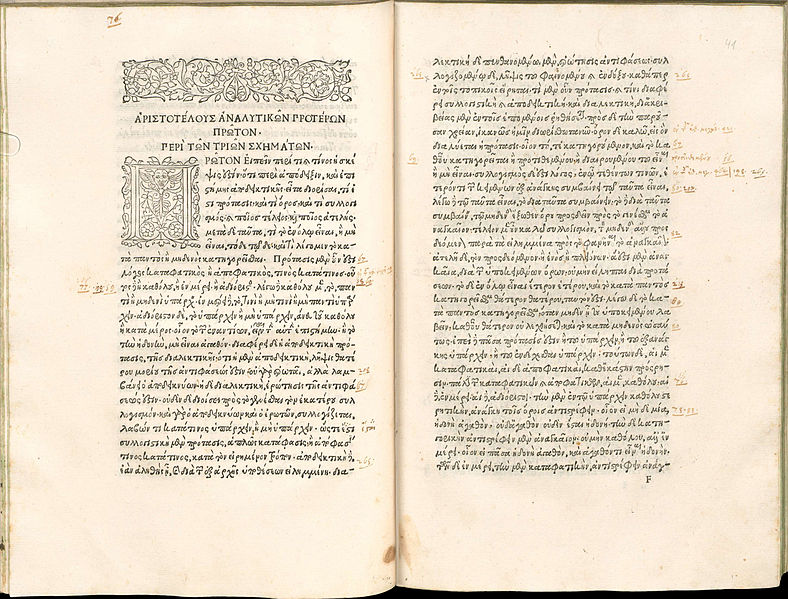 76
ΑΡΙΣΤΟΤΕΛΟΥΣ ΑΝΑΛΥΤΙΚΩΝ ΠΡΟΤΕΡΩΝ
ΠΡΩΤΟΝ·
ΠΕΡΙ ΤΩΝ ΤΡΙΩΝ ΣΧΗΜΑΤΩΝ·
ΠΡΩΤΟΝ εἰπεῖν περὶ τί καὶ τίνος ἡ σκέ
ψις ἐστὶν ὅτι περὶ ἀπόδειξιν, καὶ ἐπι
στήμης ἀποδεικτικῆς. εἶτα διορίσαι, τί ἐστι
πρότασις· καὶ τί ὅρος· καὶ τί συλλογι
σμός· καὶ ποῖος τέλειος· καὶ ποῖος ἀτελής·
μετὰ δὲ ταῦτα, τί τὸ ἐν ὅλῳ εἶναι, ἢ μὴ
εἶναι, τόδε τῷδε· καὶ τί λέγομεν τὸ κα
τὰ παντὸς ἢ μηδενὸς κατηγορεῖσθαι· Πρότασις μὲν οὖν ἐστὶ
λόγος καταφατικὸς ἢ ἀποφατικός, τινὸς κατά τινος· οὗ
τος ἢ καθόλου, ἢ ἐν μέρει, ἢ ἀδιόριστος· λέγω καθόλου μὲν, τὸ παν
τὶ ἢ μηδενὶ ὑπάρχειν· ἐν μέρει δὲ, τὸ τινὶ ἢ μὴ τινὶ ἢ μὴ παντὶ ὑπάρ
χειν· ἀδιόριστον δὲ, τὸ ὑπάρχειν ἢ μὴ ὑπάρχειν, ἄνευ τοῦ καθόλου
ἢ κατὰ μέρος· οἷον τὸ τῶν ἐναντίων, εἶναι τὴν αὐτὴν ἐπιστήμην· ἢ τὸ
τὴν ἡδονὴν, μὴ εἶναι ἀγαθόν· διαφέρει δὲ ἡ ἀποδεικτικὴ πρότα
σις, τῆς διαλεκτικῆς· ὅτι ἡ μὲν ἀποδεικτικὴ, λῆψις θατέ
ρου μορίου τῆς ἀντιφάσεώς ἐστιν· οὐ γὰρ ἐρωτᾷ, ἀλλὰ λαμ
βάνει ὁ ἀποδεικνύων· ἡ δὲ διαλεκτικὴ, ἐρώτησις ἀντιφά
σεώς ἐστιν· οὐδὲν δὲ διοίσει πρὸς τὸ γενέσθαι τὸν ἑκατέρου συλ
λογισμόν· καὶ γὰρ ὁ ἀποδεικνύων καὶ ὁ ἐρωτῶν, συλλογίζεται,
λαβών τι κατά τινος ὑπάρχειν, ἢ μὴ ὑπάρχειν· ὥστε ἔσται
συλλογιστικὴ μὲν πρότασις, ἁπλῶς κατάφασις ἢ ἀπόφασίς
τινος κατά τινος, κατὰ τὸν εἰρημένον τρόπον· ἀποδεικτικὴ δὲ,
ἐὰν ἀληθὴς ᾖ, καὶ διὰ τῶν ἐξ ἀρχῆς ὑποθέσεων εἰλημμένη· δια-
41
λεκτικὴ δὲ πυνθανομένῳ μὲν, ἐρώτησις ἀντιφάσεως· συλ
λογιζομένῳ δὲ, λῆψις τοῦ φαινομένου καὶ ἐνδόξου· καθάπερ
ἐν τοῖς τοπικοῖς εἴρηται· τί μὲν οὖν πρότασις· καὶ τίνι διαφέ
ρει συλλογιστικὴ καὶ ἀποδεικτικὴ καὶ διαλεκτικὴ, δι' ἀκρι
βείας μὲν ἐν τοῖς ἑπομένοις ῥηθήσεται· πρὸς δὲ τὴν παροῦ
σαν χρείαν, ἱκανῶς ἡμῖν διωρίσθω τὰ νῦν· ὅρον δὲ καλῶ, εἰς ὃν
διαλύεται ἡ πρότασις· οἷον τό, τε κατηγορούμενον, καὶ τὸ κα
θ' οὗ κατηγορεῖται ἢ προστιθεμένου ἢ διαιρουμένου τοῦ εἶναι
ἢ μὴ εἶναι· συλλογισμὸς δέ ἐστι λόγος, ἐν ᾧ τεθέντων τινῶν, ἕ
τερόν τι τῶν κειμένων ἐξ ἀνάγκης συμβαίνει τῷ ταῦτα εἶναι,
λέγω δὲ τῷ ταῦτα εἶναι, τὸ διὰ ταῦτα συμβαίνειν· τὸ δὲ διὰ ταῦτα
συμβαίνειν, τὸ μηδενὸς ἔξωθεν ὅρου προσδεῖν πρὸς τὸ γενέσθαι τὸ ἀ
ναγκαῖον· τέλειον μὲν οὖν καλῶ συλλογισμὸν, τὸν μηδενὸς ἄλλου προσ
δεόμενον παρὰ τὰ εἰλημμένα πρὸς τὸ φανῆναι τὸ ἀναγκαῖον·
ἀτελῆ δὲ, τὸν προσδεόμενον ἢ ἑνὸς ἢ πλειόνων· ἃ ἔστι μὲν ἀναγ
καῖα, διὰ τῶν ὑποκειμένων ὅρων· οὐ μὴν εἴληπται διὰ προτά
σεων· τὸ δὲ ἐν ὅλῳ εἶναι ἕτερον ἑτέρῳ, καὶ τὸ κατὰ παντὸς
κατηγορεῖσθαι θατέρου θάτερον, ταυτόν ἐστι· λέγω δὲ τὸ κα
τὰ παντὸς κατηγορεῖσθαι, ὅταν μηδὲν ᾖ τοῦ ὑποκειμένου λα
βεῖν, καθ' οὗ θάτερον οὐ λεχθήσεται· καὶ τὸ κατὰ μηδενὸς ὡσαύ
τως· ἐπεὶ δὲ πᾶσα πρότασίς ἐστιν ἢ τοῦ ὑπάρχειν, ἢ τοῦ ἐξ ἀνάγ
κης ὑπάρχειν· ἢ τοῦ ἐνδέχεσθαι ὑπάρχειν· τούτων δὲ, αἱ μὲν
καταφατικαὶ, αἱ δὲ ἀποφατικαὶ, καθ' ἑκάστην πρόσρη-
σιν· πάλιν δὲ τῶν καταφατικῶν καὶ ἀποφατικῶν, αἱ μὲν, καθόλου· αἱ
δὲ, ἐν μέρει· αἱ δὲ, ἀδιόριστοι· τὴν μὲν ἐν τῷ ὑπάρχειν καθόλου στε
ρητικὴν, ἀνάγκη τοῖς ὅροις ἀντιστρέφειν· οἷον εἰ μηδεμία
ἡδονὴ ἀγαθόν· οὐδ' ἀγαθὸν οὐδὲν ἔσται ἡδονή· τὴν δὲ κατη-
γορικὴν ἀντιστρέφειν μὲν ἀναγκαῖον· οὐ μὴν καθόλου, ἀλλ' ἐν
μέρει· οἷον εἰ πᾶσα ἡδονὴ ἀγαθὸν, καὶ ἀγαθόν τι εἶναι ἡδονήν·
τῶν δὲ ἐν μέρει, τὴν μὲν καταφατικὴν, ἀντιστρέφειν ἀνάγ-
F